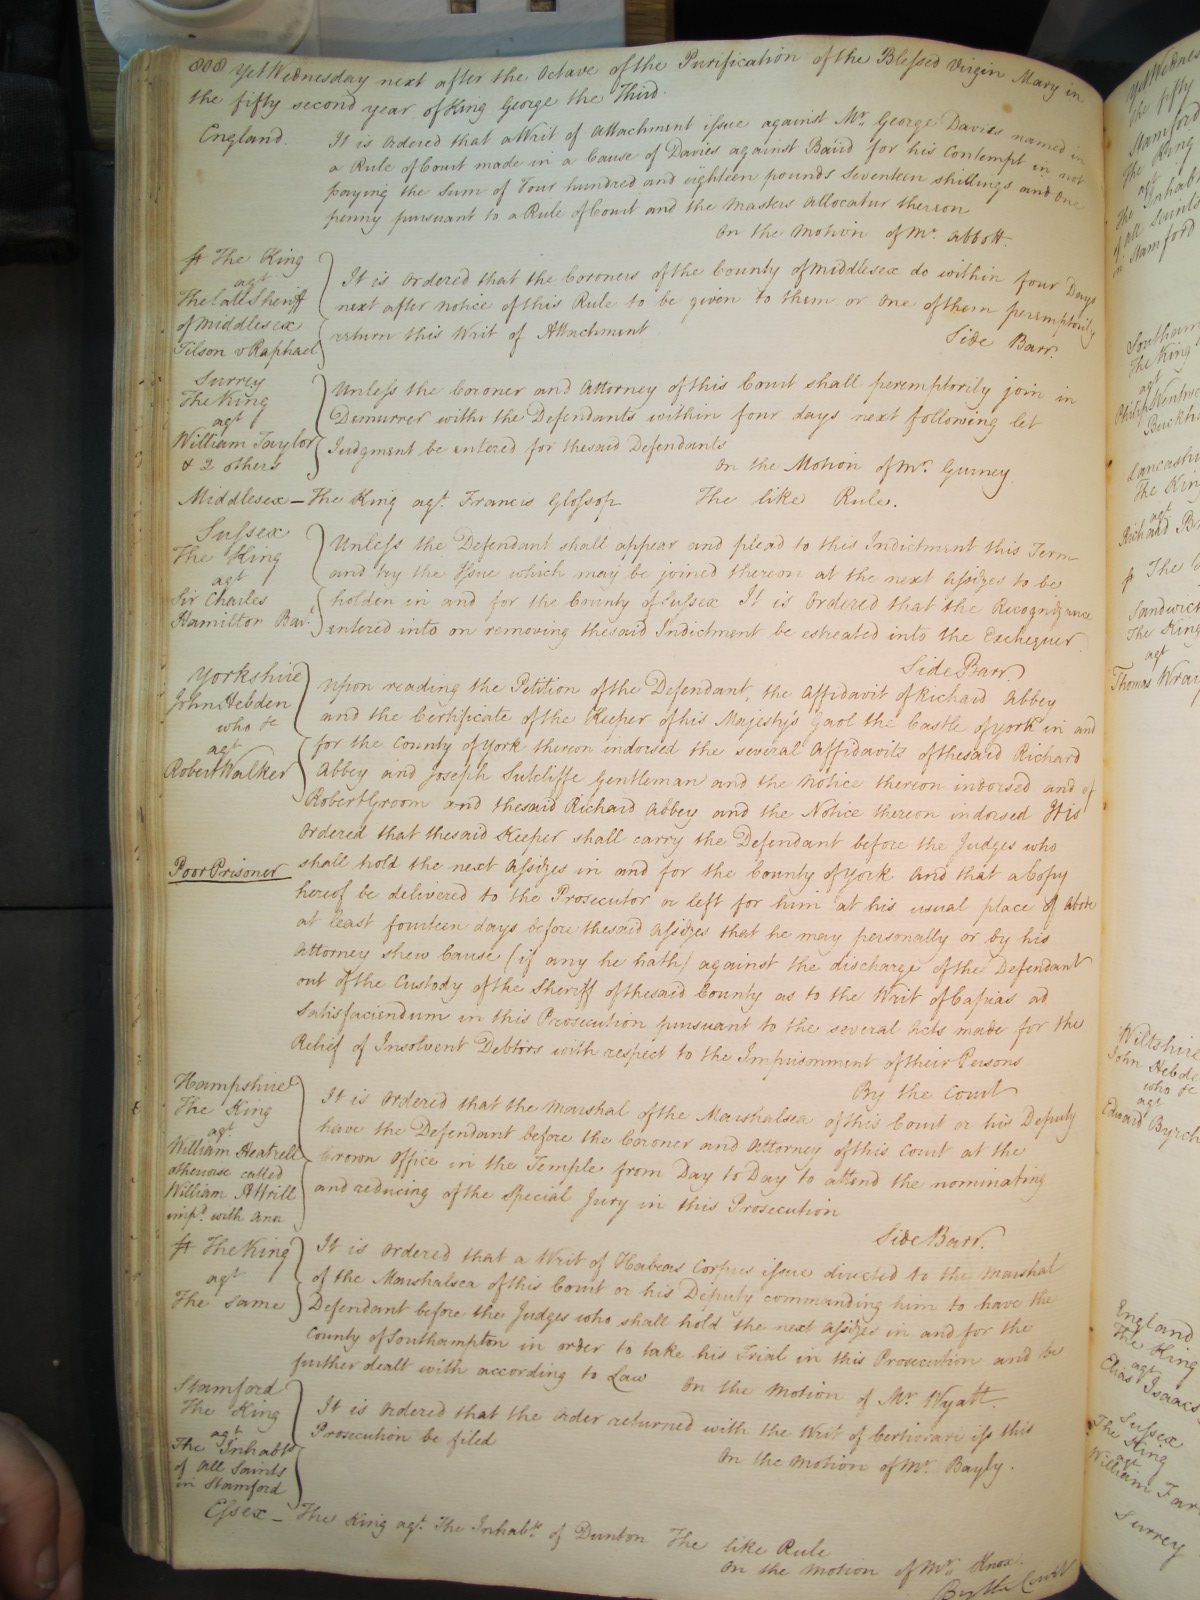 808 Yet Wednesday next after the Octave of the Purification of the Blessed Virgin Mary in
the fifty second year of King George the Third.
England. It is Ordered that a Writ of Attachment issue against Mr. George Davies named in
a Rule of Court made in a Cause of Davies against Baird for his Contempt in not
paying the Sum of Four hundred and eighteen pounds seventeen shillings and one
penny pursuant to a Rule of Court and the Masters Allocatur thereon
On the Motion of Mr. Abbott.
The King
agt
The late Sheriff
of Middlesex
Tilson v Raphael
It is Ordered that the Coroners of the County of Middlesex do within four Days
next after notice of this Rule to be given to them or one of them peremptorily
return this Writ of Attachment
Side Barr.
Surrey
The King
agt
William Taylor
& 2 others
Unless the Coroner and Attorney of this Court shall peremptorily join in
Demurrer with the Defendants within four days next following let
Judgment be entered for the said Defendants
On the Motion of Mr. Gurney.
Middlesex – The King agt. Francis Glossop The like Rule.
Sussex
The King
agt
Sir Charles
Hamilton Bar.
Unless the Defendant shall appear and plead to this Indictment this Term
and try the Issue which may be joined thereon at the next Assizes to be
holden in and for the County of Sussex It is Ordered that the Recognizance
entered into on removing the said Indictment be estreated into the Exchequer.
Side Barr.
Yorkshire
John Hebden
who &c
agt
Robert Walker
Poor Prisoner
Upon reading the Petition of the Defendant, the Affidavit of Richard Abbey
and the Certificate of the Keeper of his Majesty's Gaol the Castle of York in and
for the County of York thereon indorsed the several Affidavits of the said Richard
Abbey and Joseph Sutcliffe Gentleman and the Notice thereon indorsed and of
Robert Groom and the said Richard Abbey and the Notice thereon indorsed It is
Ordered that the said Keeper shall carry the Defendant before the Judges who
shall hold the next Assizes in and for the County of York And that a Copy
hereof be delivered to the Prosecutor or left for him at his usual place of Abode
at least fourteen days before the said Assizes that he may personally or by his
Attorney shew Cause (if any he hath) against the discharge of the Defendant
out of the Custody of the Sheriff of the said County as to the Writ of Capias ad
Satisfaciendum in this Prosecution pursuant to the several Acts made for the
Relief of Insolvent Debtors with respect to the Imprisonment of their Persons
By the Court
Hampshire
The King
agt.
William Heatrell
otherwise called
William Attrill
impd. with anr
It is Ordered that the Marshal of the Marshalsea of this Court or his Deputy
have the Defendant before the Coroner and Attorney of this Court at the
Crown Office in the Temple from Day to Day to attend the nominating
and reducing of the Special Jury in this Prosecution
Side Barr.
The King
agt
The same
It is Ordered that a Writ of Habeas Corpus issue directed to the Marshal
of the Marshalsea of this Court or his Deputy commanding him to have the
Defendant before the Judges who shall hold the next Assizes in and for the
County of Southampton in order to take his Trial in this Prosecution and be
further dealt with according to Law On the Motion of Mr. Wyatt.
Stamford
The King
agt
The Inhabts
of All Saints
in Stamford
It is Ordered that the Order returned with the Writ of Certiorari in this
Prosecution be filed
On the Motion of Mr. Bayly.
Essex – The King agt. The Inhabts. of Dunton The like Rule
On the Motion of Mr. Knox.
By the Court
the fifty
Stamford
The King
agt
The Inhab
of all Saints
in Stamford
Southam
The King
agt
Philip Wentwo
Lancashi
The King
agt
Richard B
Sandwich
The King
agt
Thomas Wray
Wiltshire
John Hebde
who &c
agt
Edward Byrch
England
The King
agt
Elias Isaacs
Sussex
The King
agt
William Far
Surrey